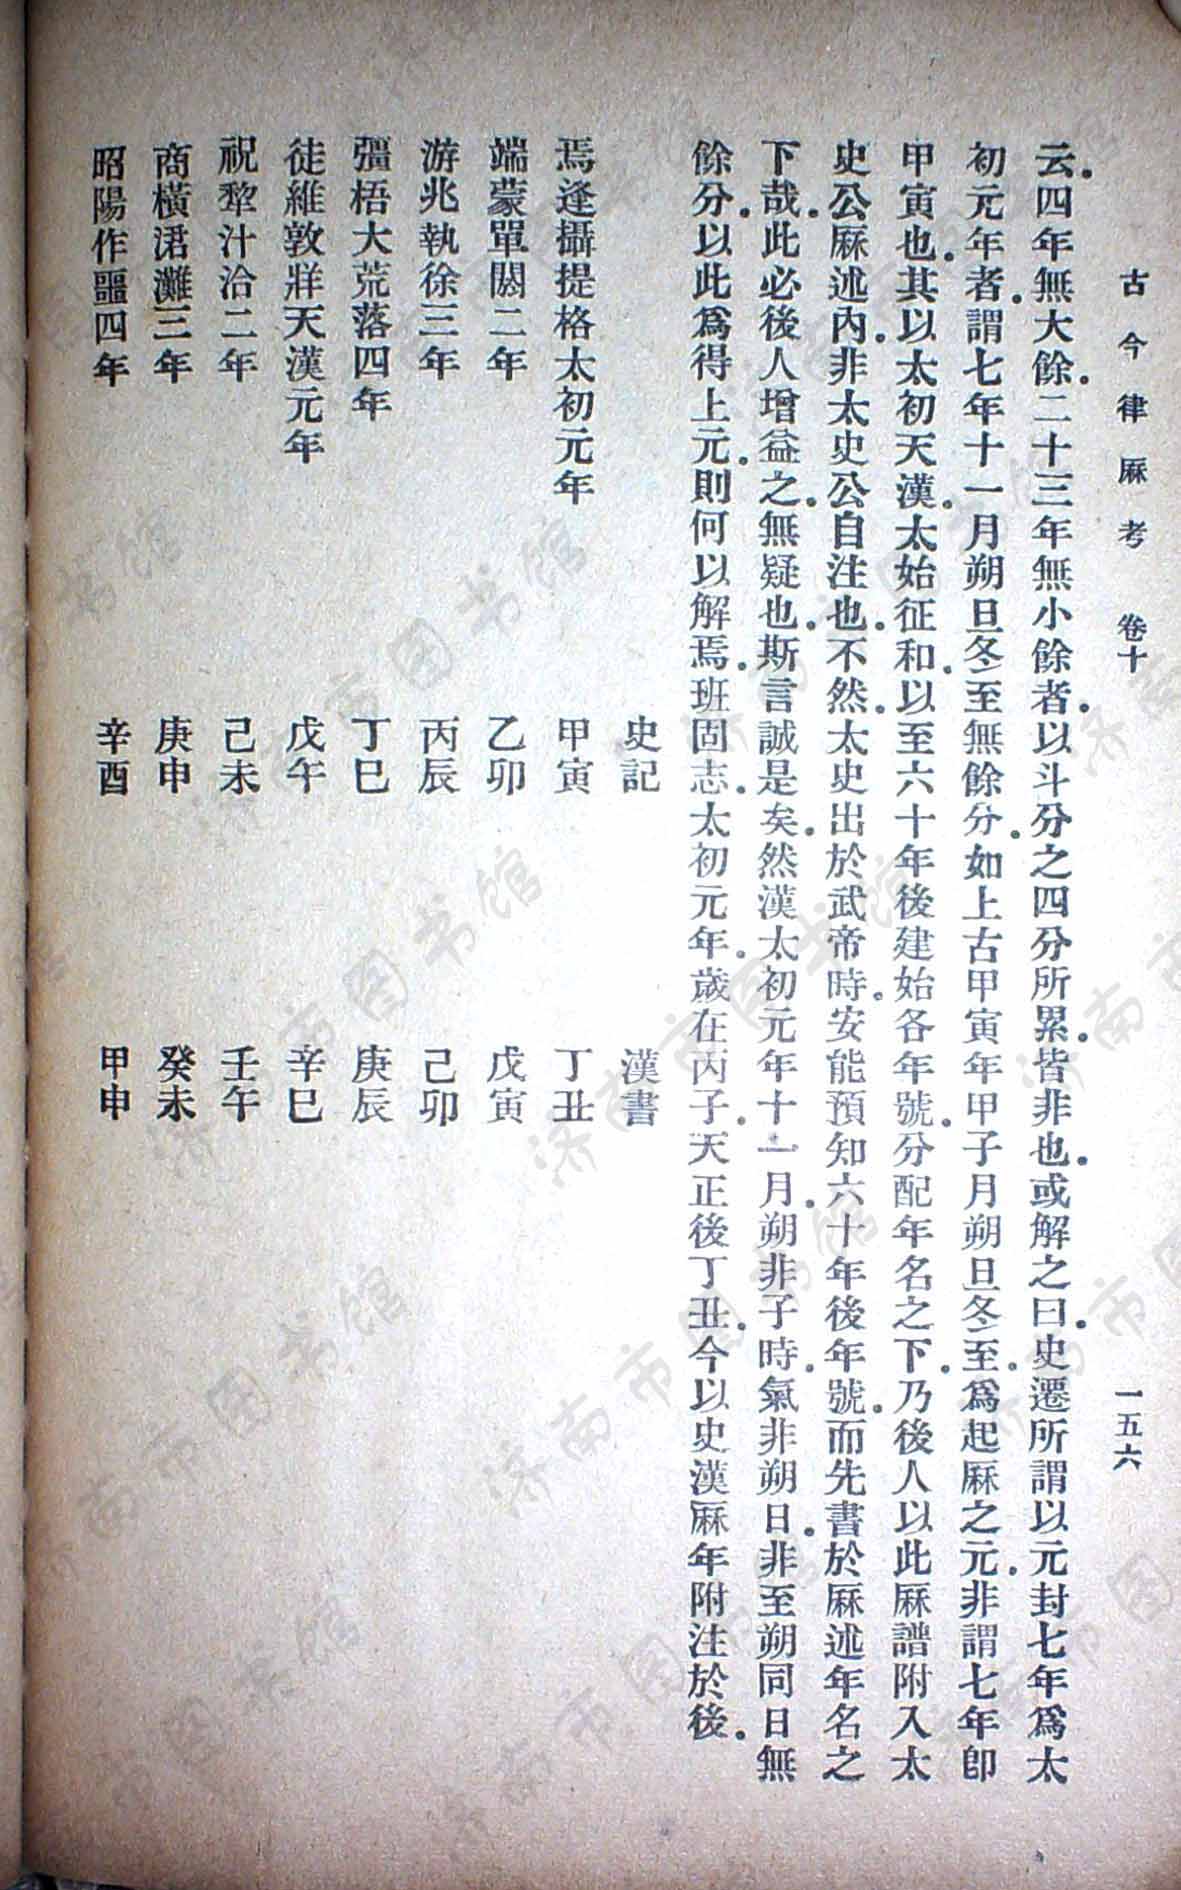 古今律厤考　卷十　一五六
云。四年無大餘。二十三年無小餘者。以斗分之四分所累。皆非也。或解之曰。史遷所謂以元封七年爲太
初元年者。謂七年十一月朔旦冬至無餘分。如上古甲寅年甲子月朔旦冬至。爲起厤之元。非謂七年卽
甲寅也。其以太初天漢。太始征和。以至六十年後建始各年號。分配年名之下。乃後人以此厤譜附入太
史公厤述內。非太史公自注也。不然。太史出於武帝時。安能預知六十年後年號。而先書於厤述年名之
下哉。此必後人增益之。無疑也。斯言誠是矣。然漢太初元年十一月。朔非子時。氣非朔日。非至朔同日無
餘分。以此爲得上元。則何以解焉。班固志。太初元年。歲在丙子。天正後丁丑。今以史漢厤年附注於後。
史記　漢書
焉逢攝提格太初元年　甲寅　丁丑
端蒙單閼二年　乙卯　戊寅
游兆執徐三年　丙辰　己卯
彊梧大荒落四年　丁巳　庚辰
徒維敦牂天漢元年　戊午　辛巳
祝犂汁洽二年　己未　壬午
商橫涒灘三年　庚申　癸未
昭陽作噩四年　辛酉　甲申
济南市图书馆